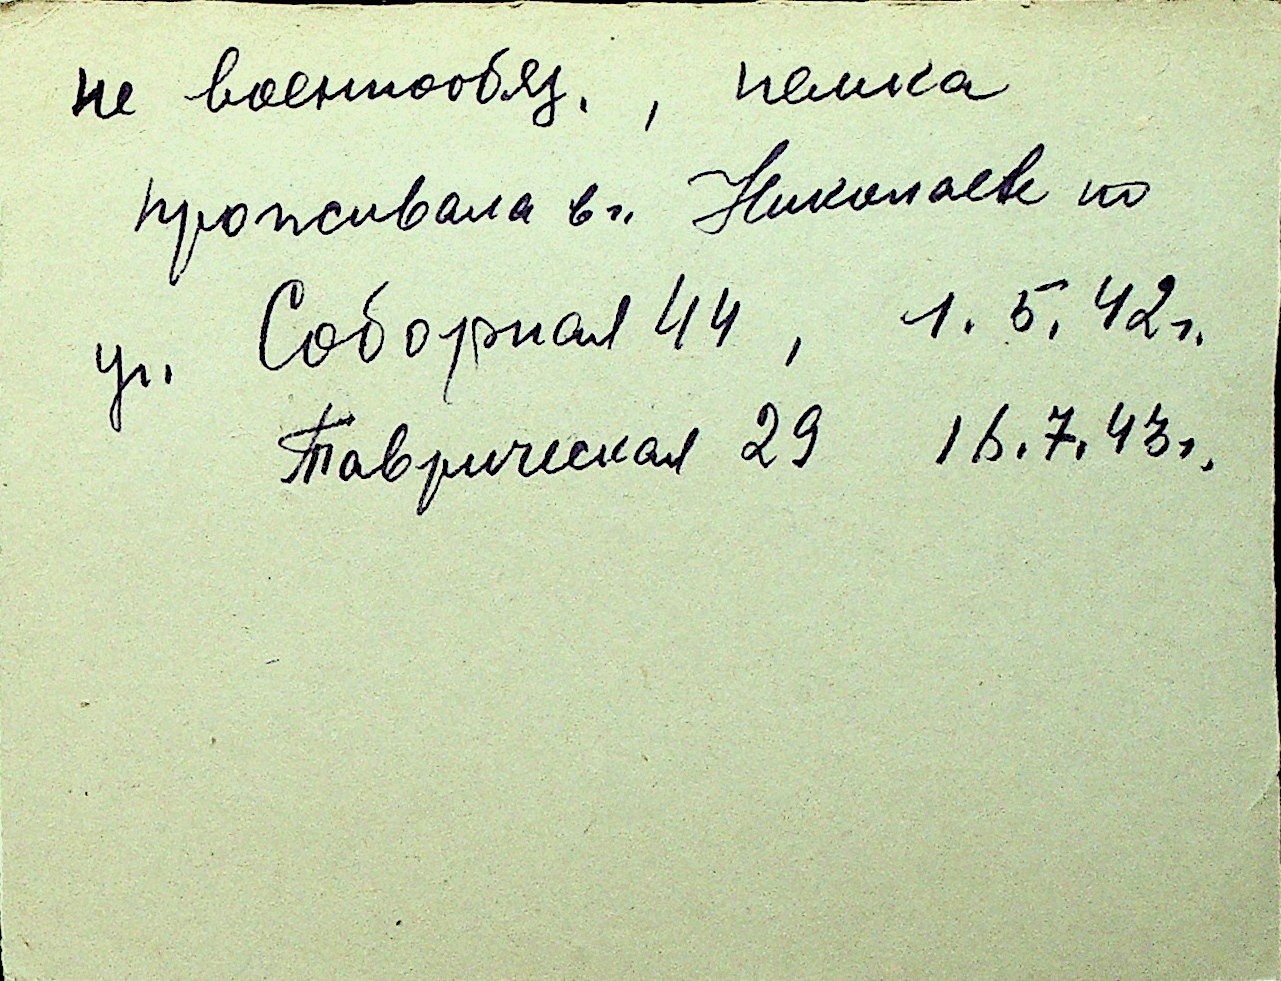 не военнообяз., немка
проживала в г. Николаев по
ул. Соборная 44, 1.5.42г.
Таврическая 29 16.7.43г.